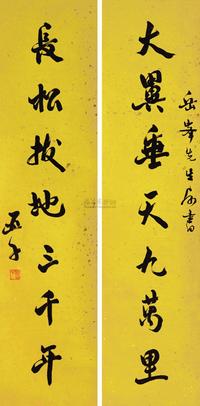 岳峰先生属書
大翼垂天九萬里
長松拔地三千年